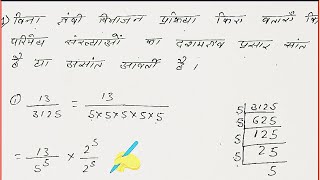 1) बिना लंबी विभाजन प्रक्रिया किए बताएँ कि
परिमेय संख्याओं का दशमलव प्रसार सांत
है या असांत आवर्ती है ।
① 13/3125 = 13/(5×5×5×5×5)
= 13/5⁵ × 2⁵/2⁵
5 | 3125
5 | 625
5 | 125
5 | 25
5